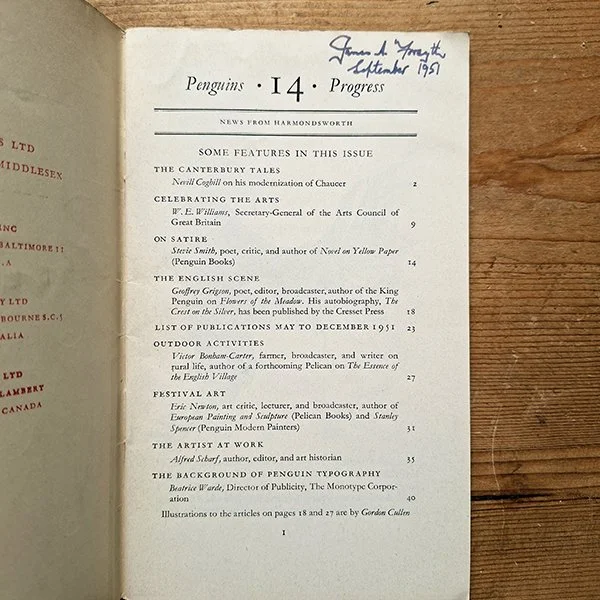 S LTD
MIDDLESEX
INC
BALTIMORE 11
.A
Y LTD
BOURNE S.C.5
ALIA
LTD
LAMBERT
CANADA
James A Forsyth
September 1951
Penguins · 14 · Progress
NEWS FROM HARMONDSWORTH
SOME FEATURES IN THIS ISSUE
THE CANTERBURY TALES
Nevill Coghill on his modernization of Chaucer 2
CELEBRATING THE ARTS
W. E. Williams, Secretary-General of the Arts Council of
Great Britain 9
ON SATIRE
Stevie Smith, poet, critic, and author of Novel on Yellow Paper
(Penguin Books) 14
THE ENGLISH SCENE
Geoffrey Grigson, poet, editor, broadcaster, author of the King
Penguin on Flowers of the Meadow. His autobiography, The
Crest on the Silver, has been published by the Cresset Press 18
LIST OF PUBLICATIONS MAY TO DECEMBER 1951 23
OUTDOOR ACTIVITIES
Victor Bonham-Carter, farmer, broadcaster, and writer on
rural life, author of a forthcoming Pelican on The Essence of
the English Village 27
FESTIVAL ART
Eric Newton, art critic, lecturer, and broadcaster, author of
European Painting and Sculpture (Pelican Books) and Stanley
Spencer (Penguin Modern Painters) 31
THE ARTIST AT WORK
Alfred Scharf, author, editor, and art historian 35
THE BACKGROUND OF PENGUIN TYPOGRAPHY
Beatrice Warde, Director of Publicity, The Monotype Corpor-
ation 40
Illustrations to the articles on pages 18 and 27 are by Gordon Cullen
1